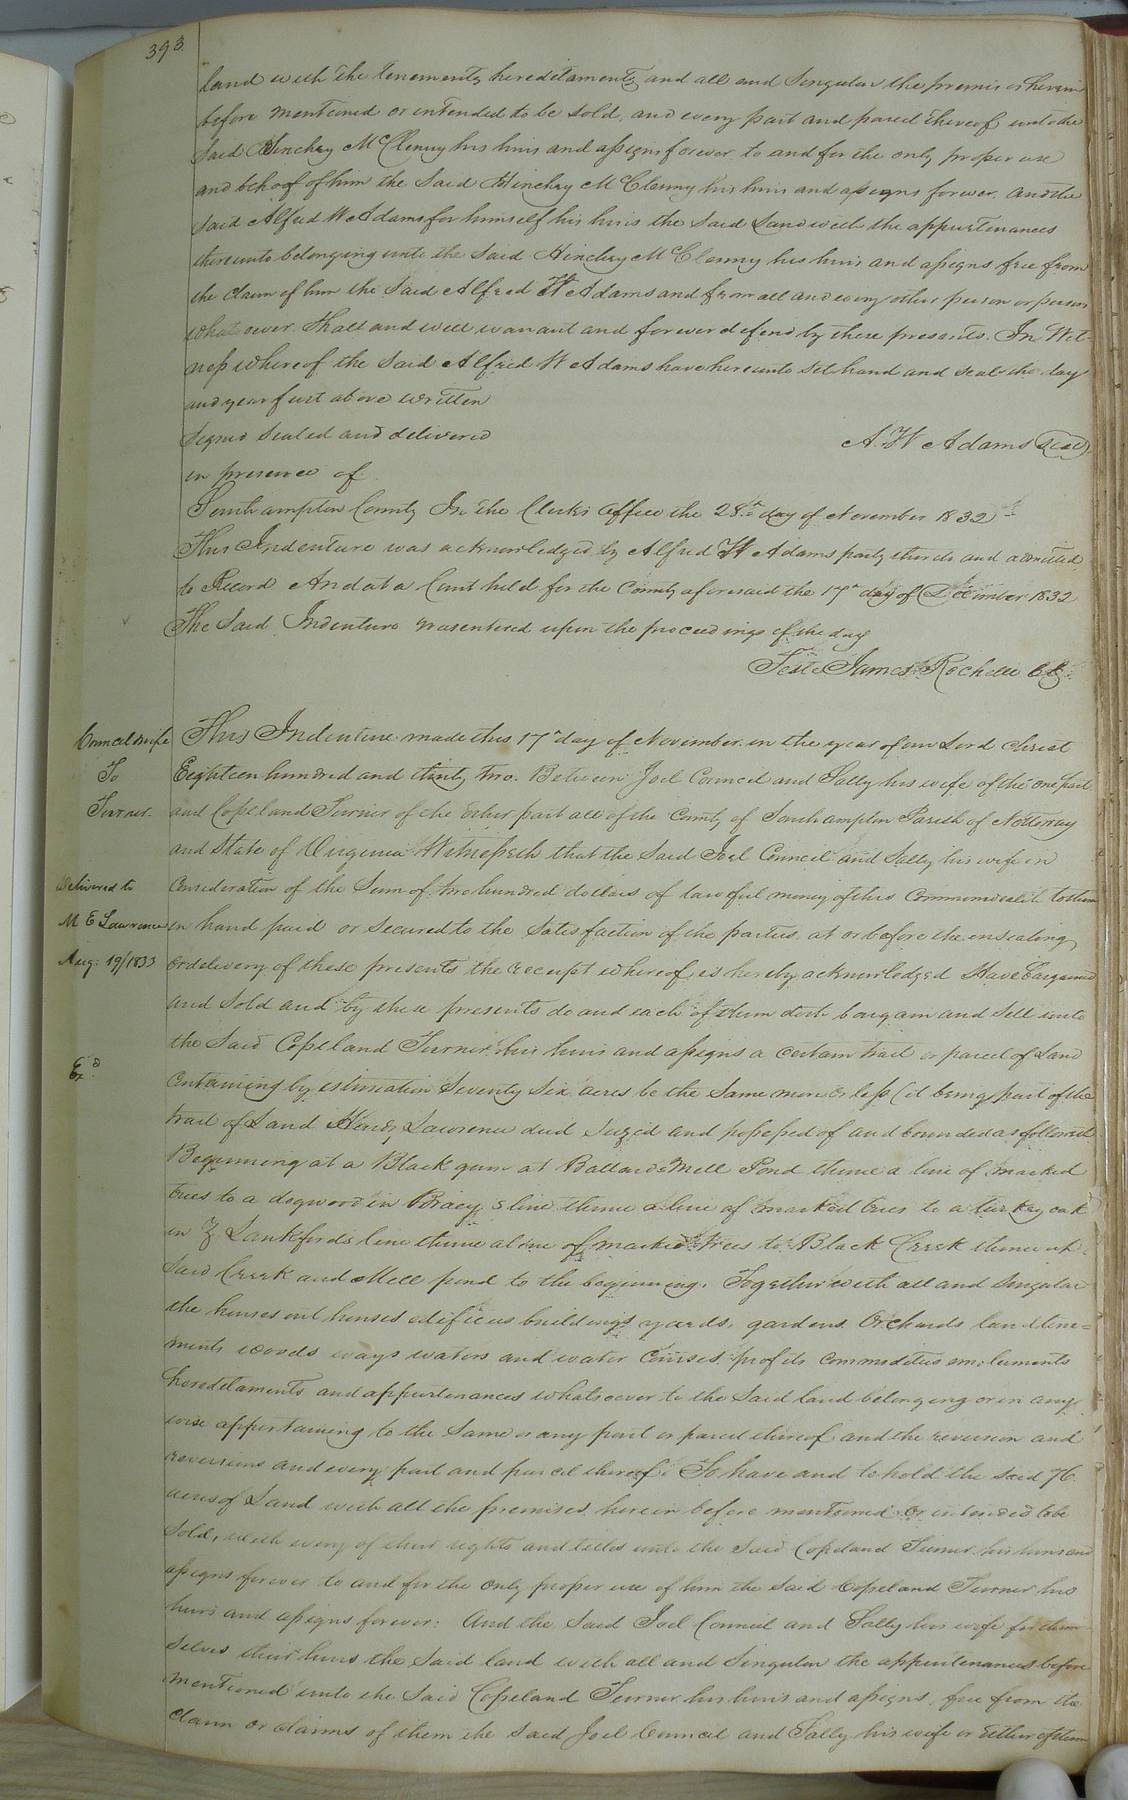 393
land with the tenements hereditaments and all and Singular the premises herein
before mentioned or intended to be sold, and every part and parcel thereof unto the
said Hinchey McClenny his heirs and assigns forever to and for the only proper use
and behoof of him the said Hinchey McClenny his heirs and assigns forever. And the
said Alfred W Adams for himself his heirs the said Land with the appurtenances
thereunto belonging unto the said Hinchey McClenny his heirs and assigns free from
the claim of him the said Alfred W Adams and from all and every other person or persons
whatsoever Shall and will warrant and forever defend by these presents. In Wit-
ness whereof the said Alfred W Adams have hereunto set hand and seal the day
and year first above written
Signed Sealed and delivered
A. W Adams Seal
in presence of
Southampton County In the Clerks Office the 28th day of November 1832
This Indenture was acknowledged by Alfred W Adams party thereto and admitted
to Record And at a Court held for the County aforesaid the 17th day of December 1832
The Said Indenture was entered upon the proceedings of the day
Teste James Rochelle
Council & wife
To
Turner.
Delivered to
M E Lawrence
Aug: 19/1833
Exd
This Indenture made this 17th day of November in the year of our Lord Christ
Eighteen hundred and thirty two. Between Joel Council and Sally his wife of the one part
and Copeland Turner of the other part all of the County of Southampton Parish of Nottoway
and State of Virginia Witnesseth that the said Joel Council and Sally his wife in
Consideration of the Sum of two hundred dollars of lawful money of this Commonwealth to them
in hand paid or secured to the satisfaction of the parties at or before the ensealing
or delivery of these presents the receipt whereof is hereby acknowledged Have bargained
and sold and by these presents do and each of them doth bargain and sell unto
the said Copeland Turner his heirs and assigns a certain tract or parcel of Land
Containing by estimation Seventy Six acres be the same more or less (it being part of the
tract of Land Lawrence died Seized and possessed of and bounded as followeth
Beginning at a Black gum at Ballards Mill Pond thence a line of marked
trees to a dogwood in Bracy's line thence a line of marked trees to a turkey oak
in Z Lankfords line thence a line of marked trees to Black Creek thence up
said Creek and Mill pond to the beginning. Together with all and Singular
the houses out houses edifices buildings yards, gardens Orchards land tene=
ments woods ways waters and water Courses profits commodities emoluments
hereditaments and appurtenances whatsoever to the said land belonging or in any
wise appertaining to the same or any part or parcel thereof and the reversion and
reversions and every part and parcel thereof. To have and to hold the said 76
acres of Land with all the premises herein before mentioned or intended to be
sold, with every of their rights and titles unto the said Copeland Turner his heirs and
assigns forever to and for the only proper use of him the said Copeland Turner his
heirs and assigns forever. And the said Joel Council and Sally his wife for them-
selves their heirs the said land with all and Singular the appurtenances before
mentioned unto the said Copeland Turner his heirs and assigns, free from the
claim or claims of them the said Joel Council and Sally his wife or either of them